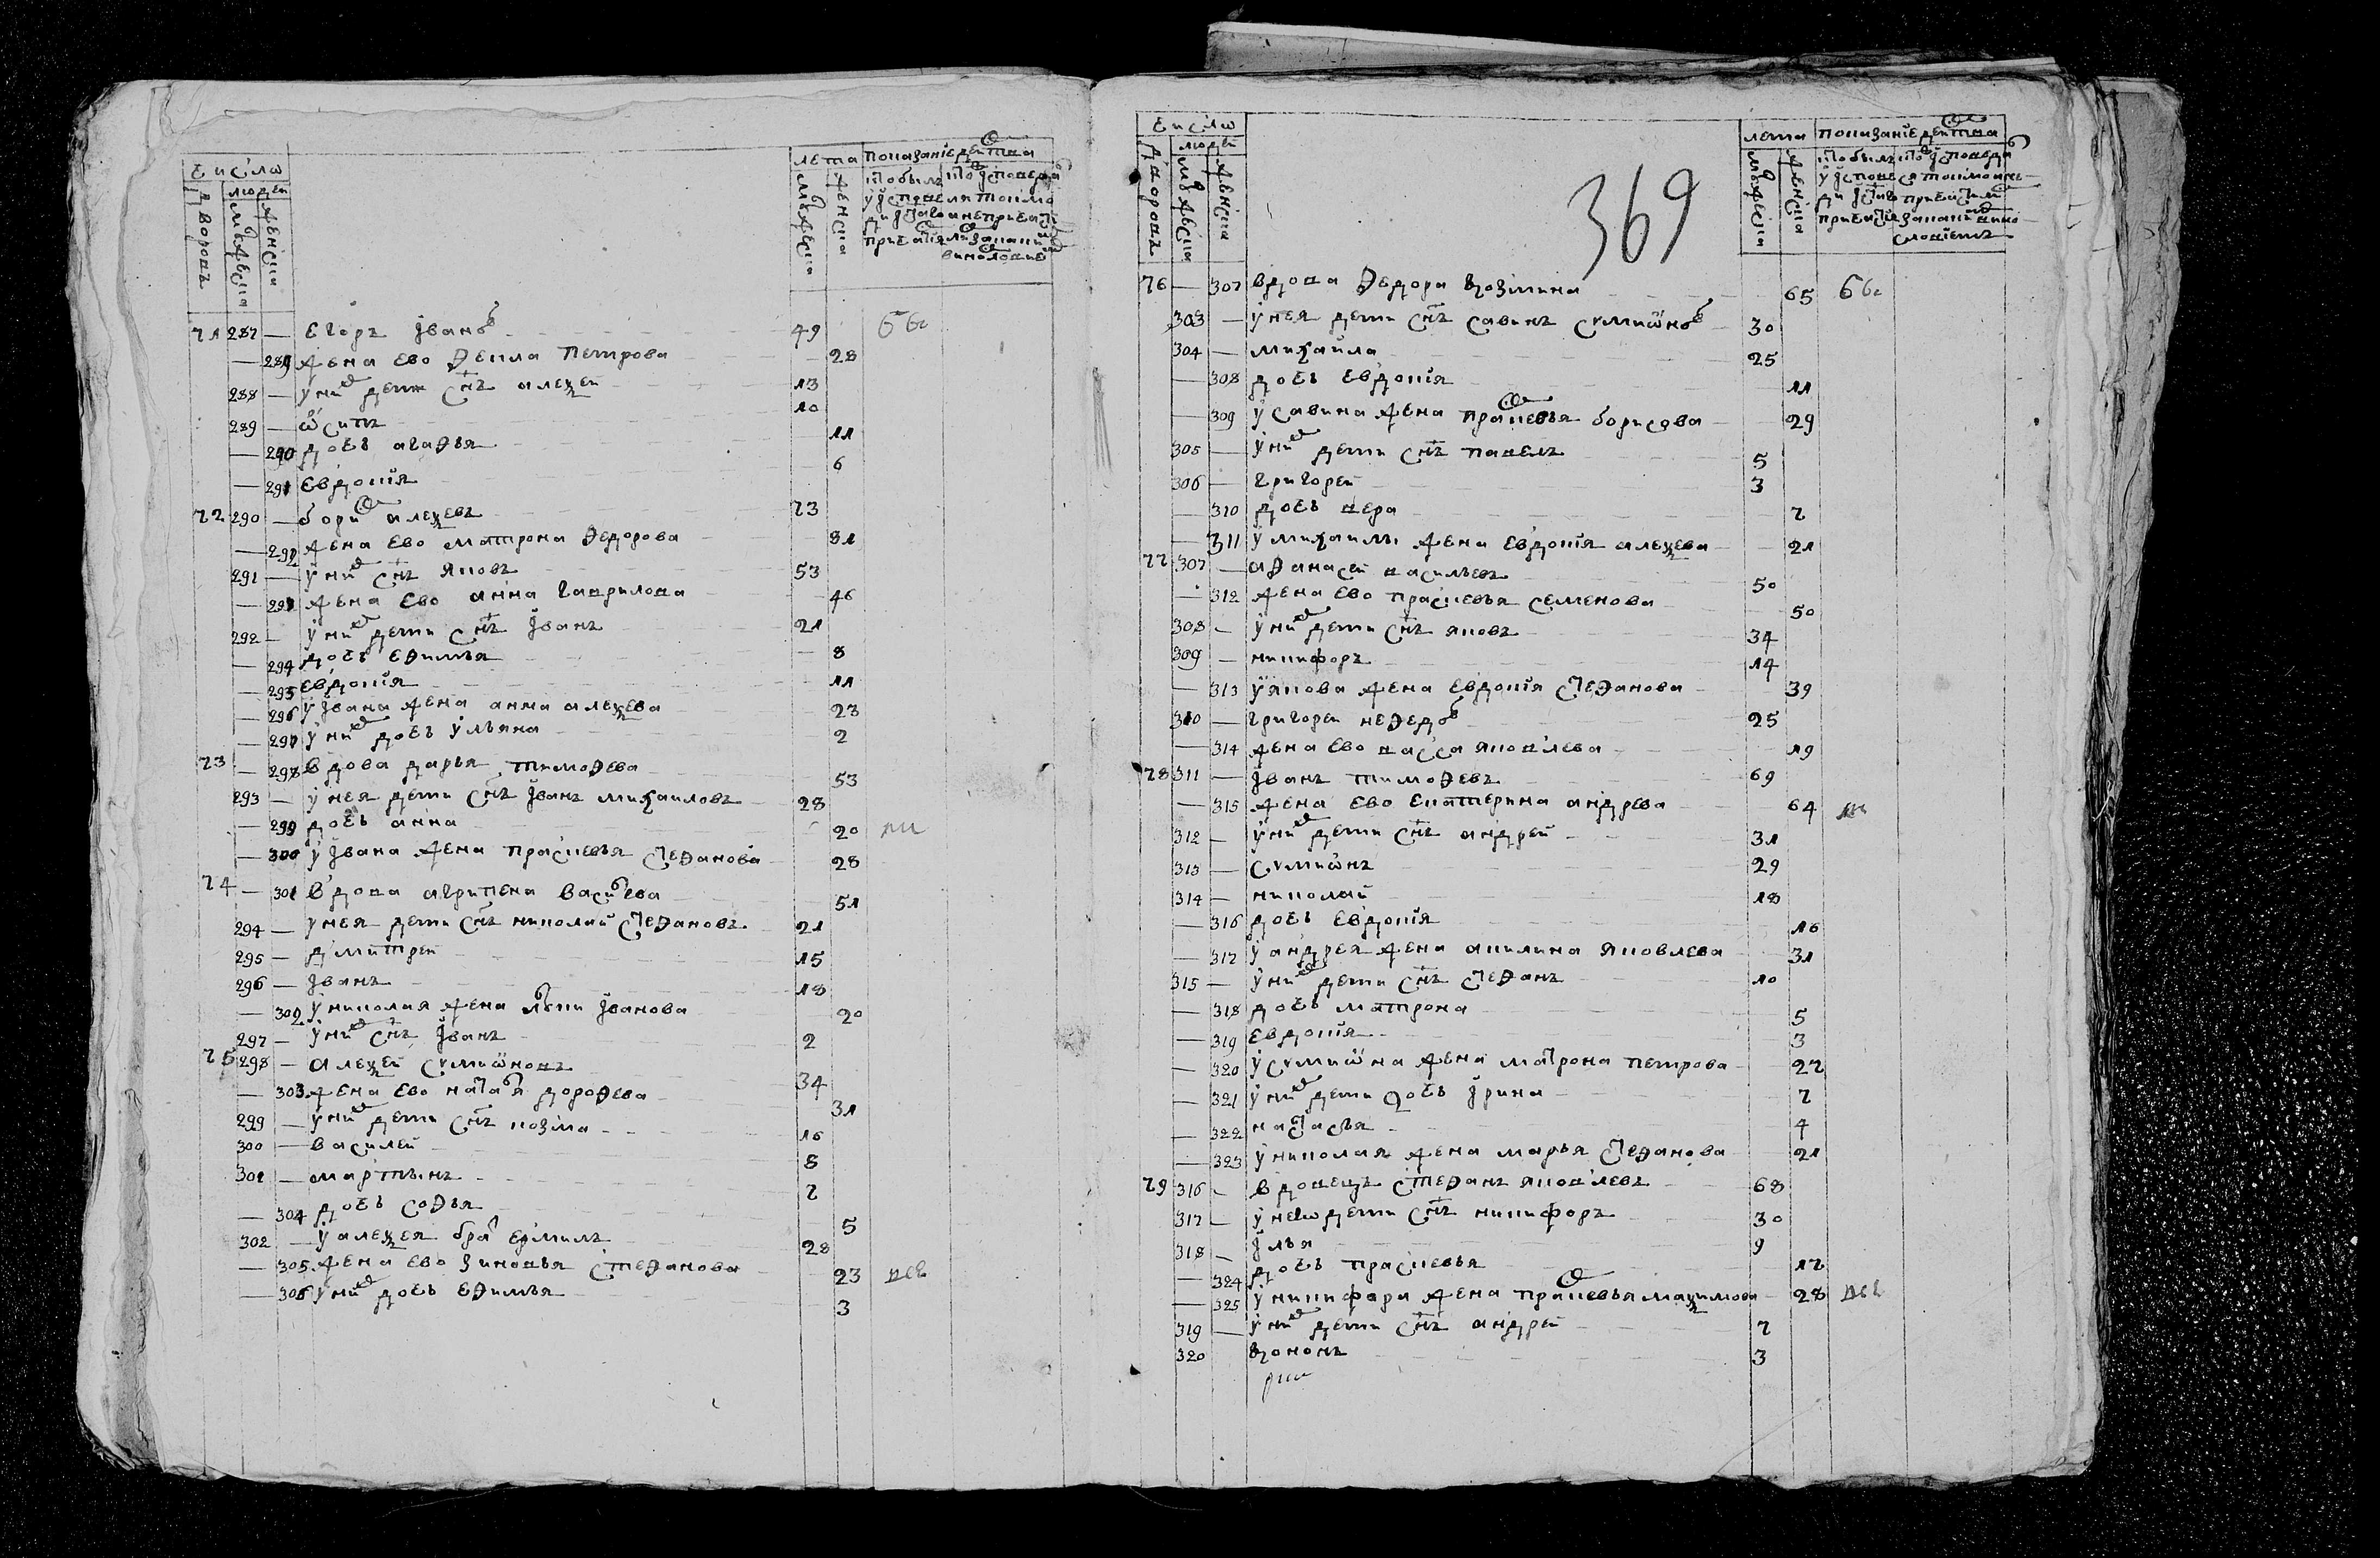 Число
Дворовъ
людей
мужеска
женска
лета
мужеска
женска
показание действа
71 287 — Егоръ Iванов 49
— 289 жена ево Фекла Петрова 28
288 — у них дети снъ алеѯей 13
289 — ѡсипъ 10
— 290 дочь агафья 11
— 291 Евдокiя 6
72 290 — борис алеѯевъ 73
— 292 жена ево матрона Федорова 81
291 — у них снъ яковъ 53
— 293 жена ево анна гаврилова 46
292 — у них дети снъ Iванъ 21
— 294 дочь ефимья 8
— 295 Евдокiя 11
— 296 у Iвана жена анна алеѯева 23
— 297 у них дочь ульяна 2
73 — 298 вдова дарья тимофева 53
293 — у нея дети снъ Iванъ михаиловъ 28
— 299 дочь анна 20
— 300 у Iвана жена праскевья стефанова 28
74 — 301 вдова агрипена василева 51
294 — у нея дети снъ николай стефановъ 21
295 — дмитрей 15
296 — Iванъ 18
— 302 у николая жена Iванова 20
297 — у них снъ Iванъ 2
75 298 — алеѯей сѵмиѡновъ 34
— 303 жена ево наталя дорофева 31
299 — у них дети снъ козма 16
300 — василей 8
301 — мартынъ 7
— 304 дочь софья 5
302 — у алеѯея брат ермилъ 28
— 305 жена ево зиновья стефанова 23
— 306 у них дочь ефимья 3
369
Число
Дворовъ
людей
мужеска
женска
лета
мужеска
женска
показание действа
76 — 307 вдова Федора козмина 65
303 — у нея дети снъ савинъ сѵмиѡнов 30
304 — михайла 25
— 308 дочь Евдокiя 11
— 309 у савина жена прасковья борисова 29
305 — у них дети снъ павелъ 5
306 — григорей 3
— 310 дочь вера 7
— 311 у михаилы жена евдокiя алеѯева 21
77 307 — афанасей васильевъ 50
— 312 жена ево праскевья семенова 50
308 — у них дети снъ яковъ 34
309 — никифоръ 14
— 313 у якова жена евдокiя стефанова 39
310 — григорей нефедов 25
— 314 жена ево васса яковлева 19
78 311 — Iванъ тимофевъ 69
— 315 жена ево екатерина андрева 64
312 — у них дети снъ андрей 31
313 — сѵмиѡнъ 29
314 — николай 18
— 316 дочь евдокiя 16
— 317 у андрея жена акилина яковлева 31
315 — у них дети снъ стефанъ 10
— 318 дочь матрона 5
— 319 евдокiя 3
— 320 у сѵмиѡна жена матрона петрова 27
— 321 у них дети дочь Iрина 7
— 322 настасья 4
— 323 у николая жена марья стефанова 21
79 316 — вдовецъ стефанъ яковлевъ 68
317 — у нево дети снъ никифоръ 30
318 — Iлья 9
— 324 дочь праскевья 17
— 325 у никифора жена прасковья маѯимова 28
319 — у них дети снъ андрей 7
320 кононъ 3